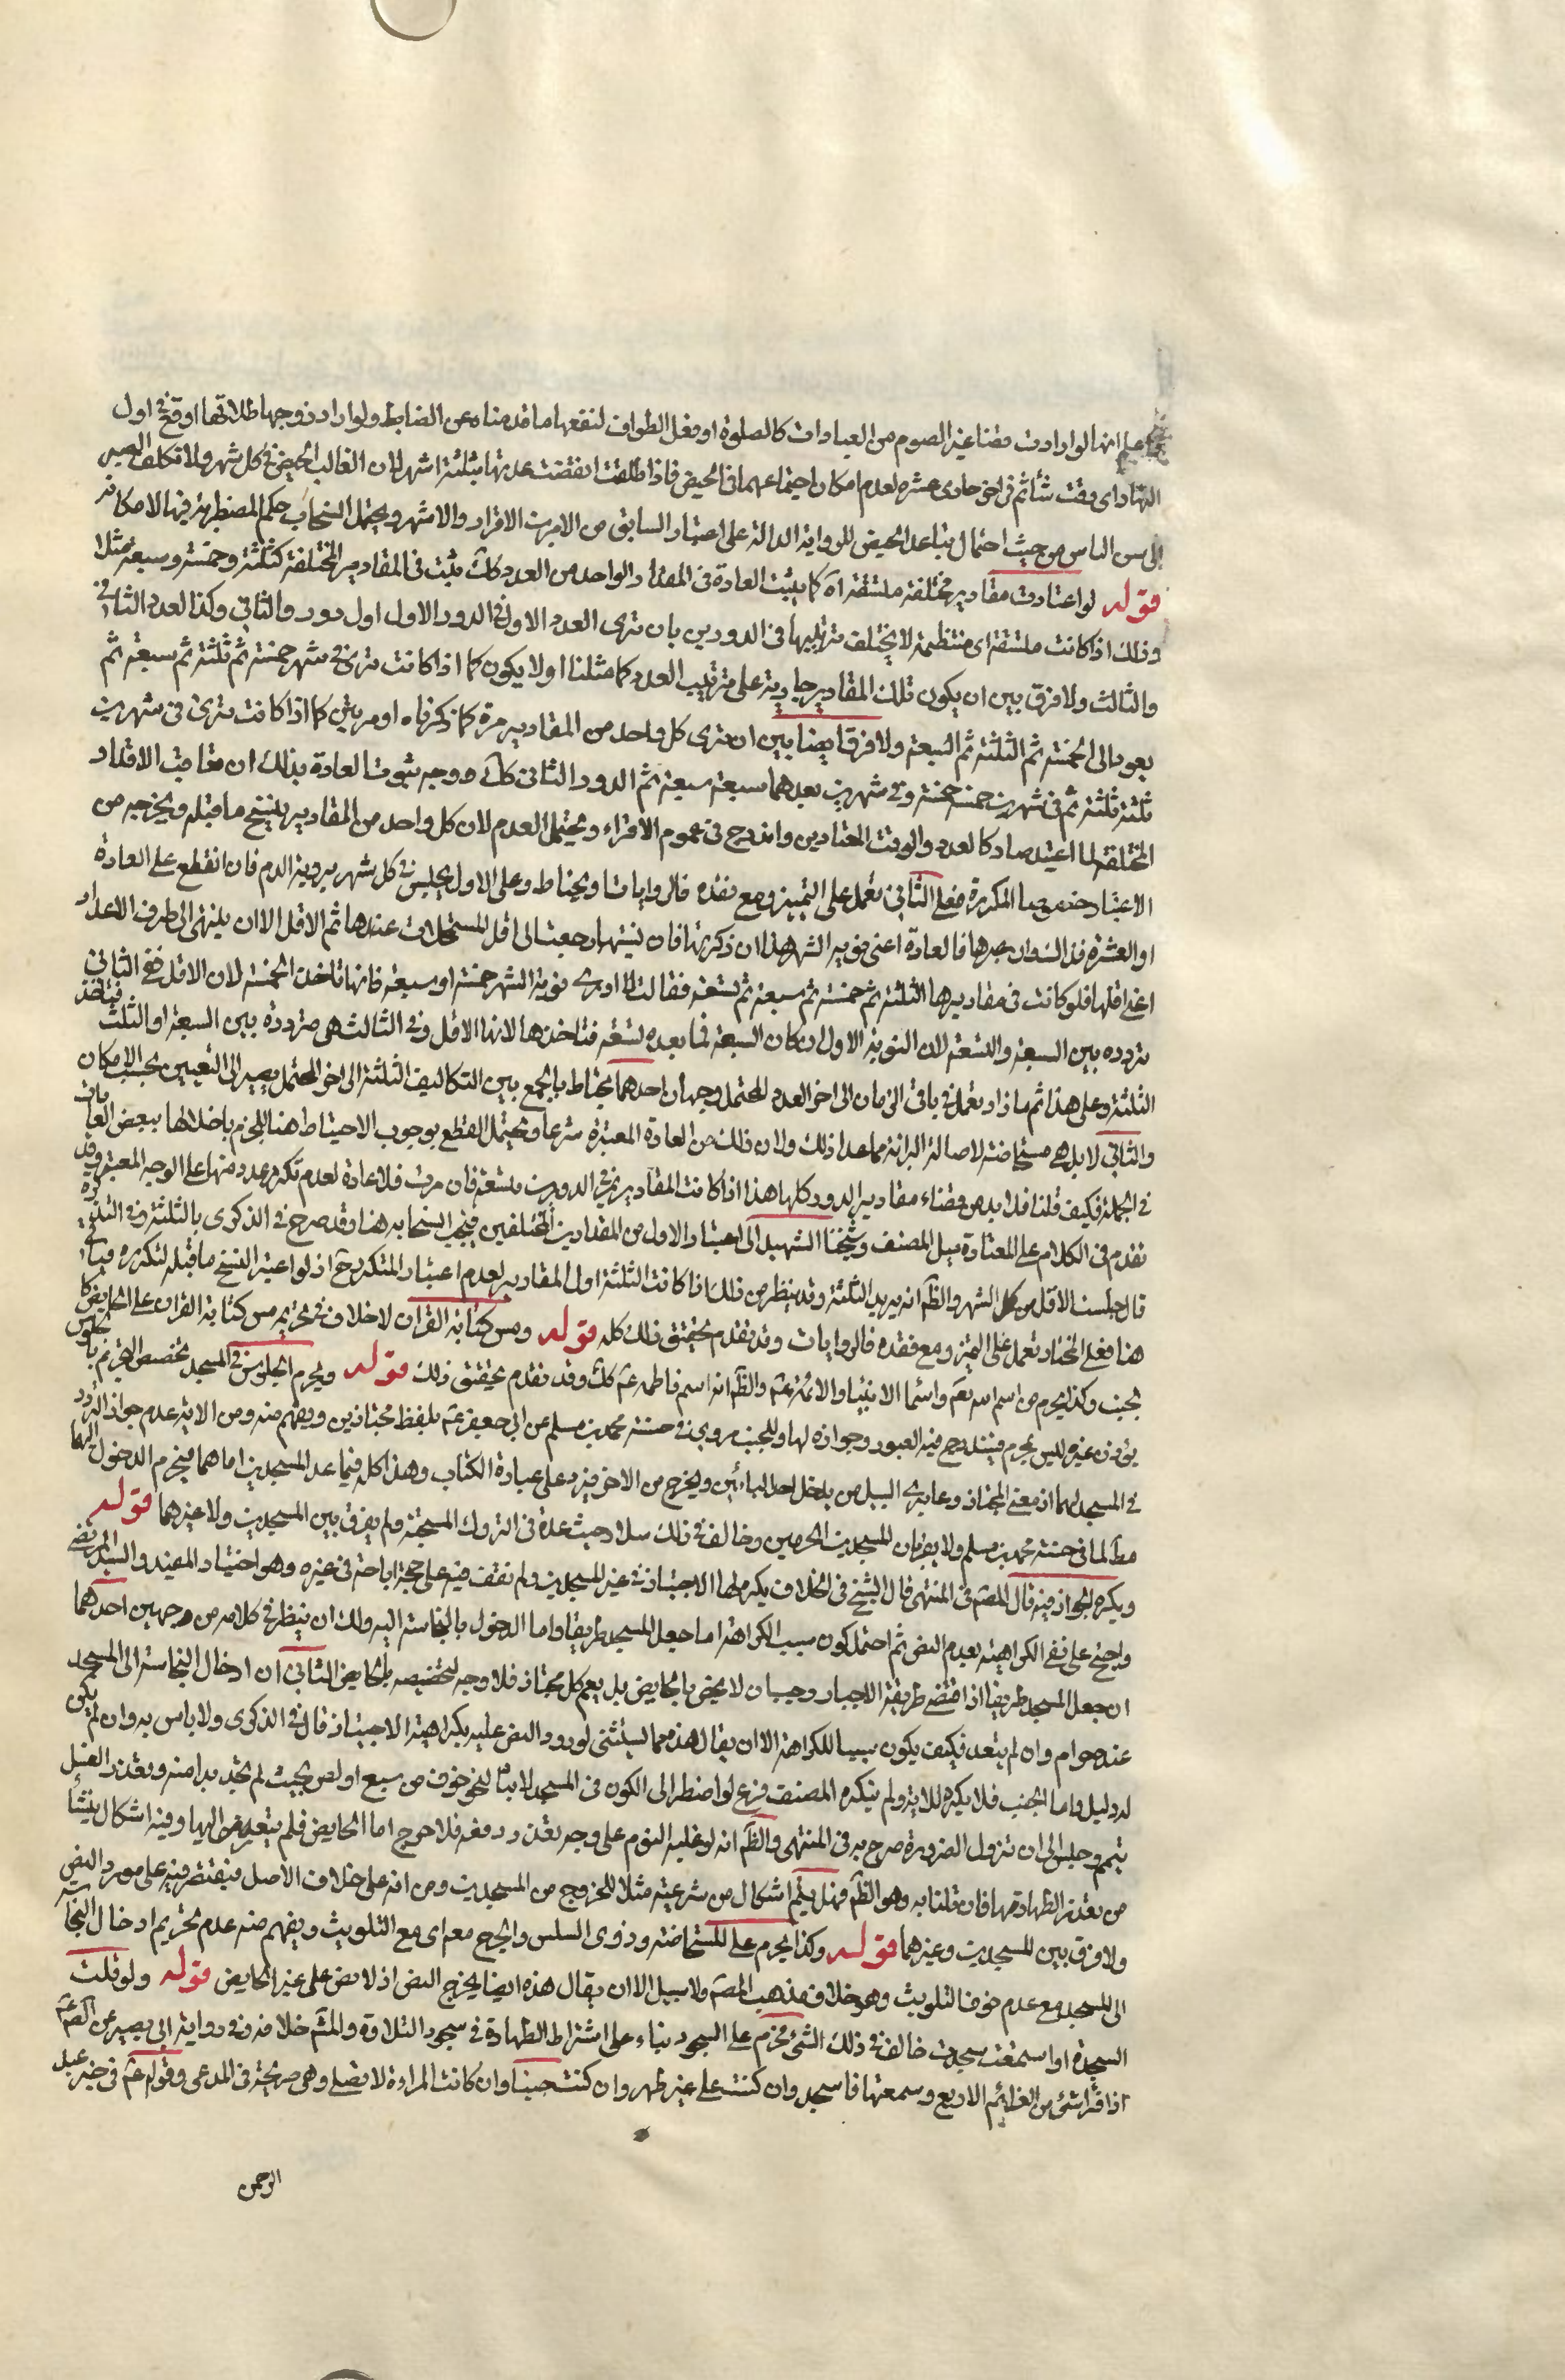 اعلم انها لو ارادت قضاء غير الصوم من العبادات كالصلوة او فعل الطواف لنفعها ما قدمناه من الضابط ولو اراد زوجها طلاقها اوقع في اول
النهار اى وقت شاء ثم في اخر حادى عشره لعدم امكان اجتماعهما في الحيض فاذا طلقت انقضت عدتها بثلثة اشهر لان الغالب الحيض في كل شهر ولا تكلف الصبر
الى سن الياس من حيث احتمال تباعد الحيض للرواية الدالة على اعتبار السابق من الامرين الاقراء والاشهر ويحتمل انسحاب حكم المضطربة فيها لامكانه
قوله لو اعتادت مقادير مختلفة متسقة اه كما يثبت العادة في المقدار الواحد من العدد كك يثبت في المقادير المختلفة كثلثة وخمسة وسبعة مثلا
وذلك اذا كانت متسقة اى منتظمة لا يختلف ترتيبها في الدورين بان ترى العدد الاول في الدور الاول اول دور والثاني وكذا العدد الثاني
والثالث ولا فرق بين ان يكون تلك المقادير جارية على ترتيب العدد كما مثلنا او لا يكون كما اذا كانت ترى في شهر خمسة ثم ثلثة ثم سبعة ثم
يعود الى الخمسة ثم الثلثة ثم السبعة ولا فرق ايضا بين ان ترى كل واحد من المقادير مرة كما ذكرناه او مرتين كما اذا كانت ترى في شهرين
ثلثة ثلثة ثم في شهرين خمسة خمسة وفي شهرين بعدهما سبعة سبعة ثم الدور الثاني كك ووجه ثبوت العادة بذلك ان تعاقب الاقدار
المختلفة لما اعتيد صار كالعدد والوقت المعتادين واندرج في عموم الاقراء ويحتمل العدم لان كل واحد من المقادير ينسخ ما قبله ويخرجه من
الاعتبار خصوصا المكررة فعلى الثاني تعمل على التميز ومع فقده فالروايات او يحتاط وعلى الاول يجلس في كل شهر برؤية الدم فان انقطع على العادة
او العشرة فذ التوان عبرها فالعادة اعنى نوبة الشهر هذا ان ذكرتها فان نسيتها رجعت الى اقل المستحلات عندها ثم الاقل الا ان ينتهى الى طرف الاعداد
اعنى اقلها فلو كانت في مقاديرها الثلثة ثم خمسة ثم سبعة ثم تسعة فقالت لا ادرى نوبة الشهر خمسة او سبعة فانها تاخذ الخمسة لان الاقل ففي الثاني
تردده بين السبعة والتسعة لان النوبة الاولى ان كان السبعة فما بعده تسعة فتاخذها لانها الاقل وفي الثالث هي مترددة بين السبعة او الثلث فتاخذ
الثلثة وعلى هذا ثم ماذا تعمل في باقي الزمان الى اخر العدد المحتمل وجهان احدهما يحتاط بالجمع بين التكاليف الثلثة الى اخر المحتمل يصير الى التعيين بحسب الامكان
والثاني لا بل هي مستحاضة لاصالة البرائة مما عدا ذلك ولان ذلك من العادة المعتبرة شرعا ويحتمل القطع بوجوب الاحتياط هنا للجزم باخلالها ببعض العادات
في الجملة فكيف قلنا فلا بد من قضاء مقادير الدور كلها هذا اذا كانت المقادير في الدورين متسعة فان مرت فلا عادة لعدم تكرر عدد منها على الوجه المعتبر وقد
تقدم في الكلام على المعتادة ميل المصنف وشيخنا الشهيد الى اعتبار الاول من المقدارين المختلفين فيجب انسحابه هنا وقد صرح في الذكرى بالثلثة وفي التذكرة
قال جلست الاقل من كل الشهر والظ انه يريد الثلثة وقد ينظر من ذلك اذا كانت الثلثة اول المقادير لعدم اعتبار المتكرر ح اذ لو اعتبر النسخ ما قبله لتكرره فيأتي
هنا فعلى المختار تعمل على التميز ومع فقده فالروايات وقد تقدم تحقيق ذلك كله قوله ومس كتابة القران لا خلاف في تحريم مس كتابة القران على الحايض كا
لجنب وكذا يحرم مس اسم الله تعم واسماء الانبياء والائمة عم والظ انه اسم فاطمه عم كك وقد تقدم تحقيق ذلك قوله ويحرم الجلوس في المسجد تخصيص التحريم بالجلوس
يؤذن غيره ليس بمحرم فيندرج فيه العبور وجوازه لها وللجنب مروى في حسنة محمد بن مسلم عن ابى جعفر عم بلفظ مجتازين ويفهم منه ومن الاية عدم جواز التردد
في المسجد لهما اذ معنى المجتاز وعابرى السبيل من يدخل احد البابين ويخرج من الاخر فيزد على عبارة الكتاب وهذا كله فيما عدا المسجدين اما هما فيحرم الدخول اليهما
مط لما في حسنة محمد بن مسلم ولا يقربان المسجدين الحرمين وخالف في ذلك سلار حيث عده في التروك المستحبة ولم يفرق بين المسجدين ولا غيرهما قوله
ويكره الجواز فيه قال المص في المنتهى قال الشيخ في الخلاف يكره لها الاجتياز في غير المسجدين ولم نقف فيه على حجة اباحته في غيره وهو اختيار المفيد والسيد المرتضى
واحتج على نفى الكراهية بعدم النص ثم احتمل كون سبب الكراهة اما جعل المسجد طريقا واما الدخول بالنجاسة اليه ولك ان ينظر في كلامه من وجهين احدهما
ان جعل المسجد طريقا اذا اقتضى طريقة الاجبار وجب ان لا يختص بالحايض بل يعم كل مجتاز فلا وجه لتخصيصه بالحايض الثاني ان ادخال النجاسة الى المسجد
عنده حرام وان لم يتعد فكيف يكون سببا للكراهة الا ان يقال هذه مما يستثنى لورود النص عليه بكراهية الاجتياز قال في الذكرى ولا باس به وان لم يكن
له دليل واما الجنب فلا يكره للاية ولم ينكره المصنف فرع لو اضطر الى الكون في المسجد لابثا لنحو خوف من سبع او لص بحيث لم تجد بدا منه وتعذر الغسل
تيمم وجلس الى ان تزول الضرورة صرح به في المنتهى والظ انه لو غلبه النوم على وجه تعذر دفعه فلا حرج اما الحايض فلم يتعرض اليها وفيه اشكال ينشأ
من تعذر الطهارة منها فان قلنا به وهو الظ فهل يتيمم اشكال من شرعيته مثلا للخروج من المسجدين ومن انه على خلاف الاصل فيقتصر فيه على مورد النص
ولا فرق بين المسجدين وغيرهما قوله وكذا يحرم على المستحاضة وذوى السلس والجرح معه اى مع التلويث ويفهم منه عدم تحريم ادخال النجاسة
الى المسجد مع عدم خوف التلويث وهو خلاف مذهب المص ولا سبيل الا ان يقال هذه ايضا يخرج النص اذ لا نص على غير الحايض قوله ولو تلت
السجدة او استمعت سجدت خالف في ذلك الشيخ فحرم على السجود بناء على اشتراط الطهارة في سجود التلاوة والمش خلافه وفي رواية ابى بصير عن الص عم
اذا قرأ شئ من العزائم الاربع وسمعتها فاسجد وان كنت على غير طهر وان كنت جنبا وان كانت المراءة لا تصلى وهي صريحة في المدعى وقوله عم في خبر عبد
الرحمن